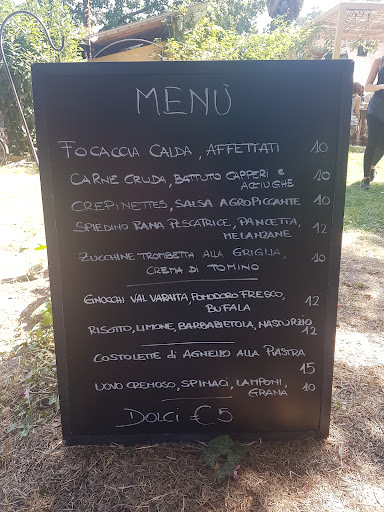 MENÙ
FOCACCIA CALDA, AFFETTATI 10
CARNE CRUDA, BATTUTO CAPPERI e
ACCIUGHE 10
CREPINETTES, SALSA AGROPICCANTE 10
SPIEDINO RANA PESCATRICE, PANCETTA,
MELANZANE 12
ZUCCHINE TROMBETTA ALLA GRIGLIA,
CREMA DI TOMINO 10
GNOCCHI VAL VARAITA, POMODORO FRESCO,
BUFALA 12
RISOTTO, LIMONE, BARBABIETOLA, NASTURZIO
12
COSTOLETTE di AGNELLO ALLA PIASTRA
15
UOVO CREMOSO, SPINACI, LAMPONI,
GRANA 10
DOLCI €5